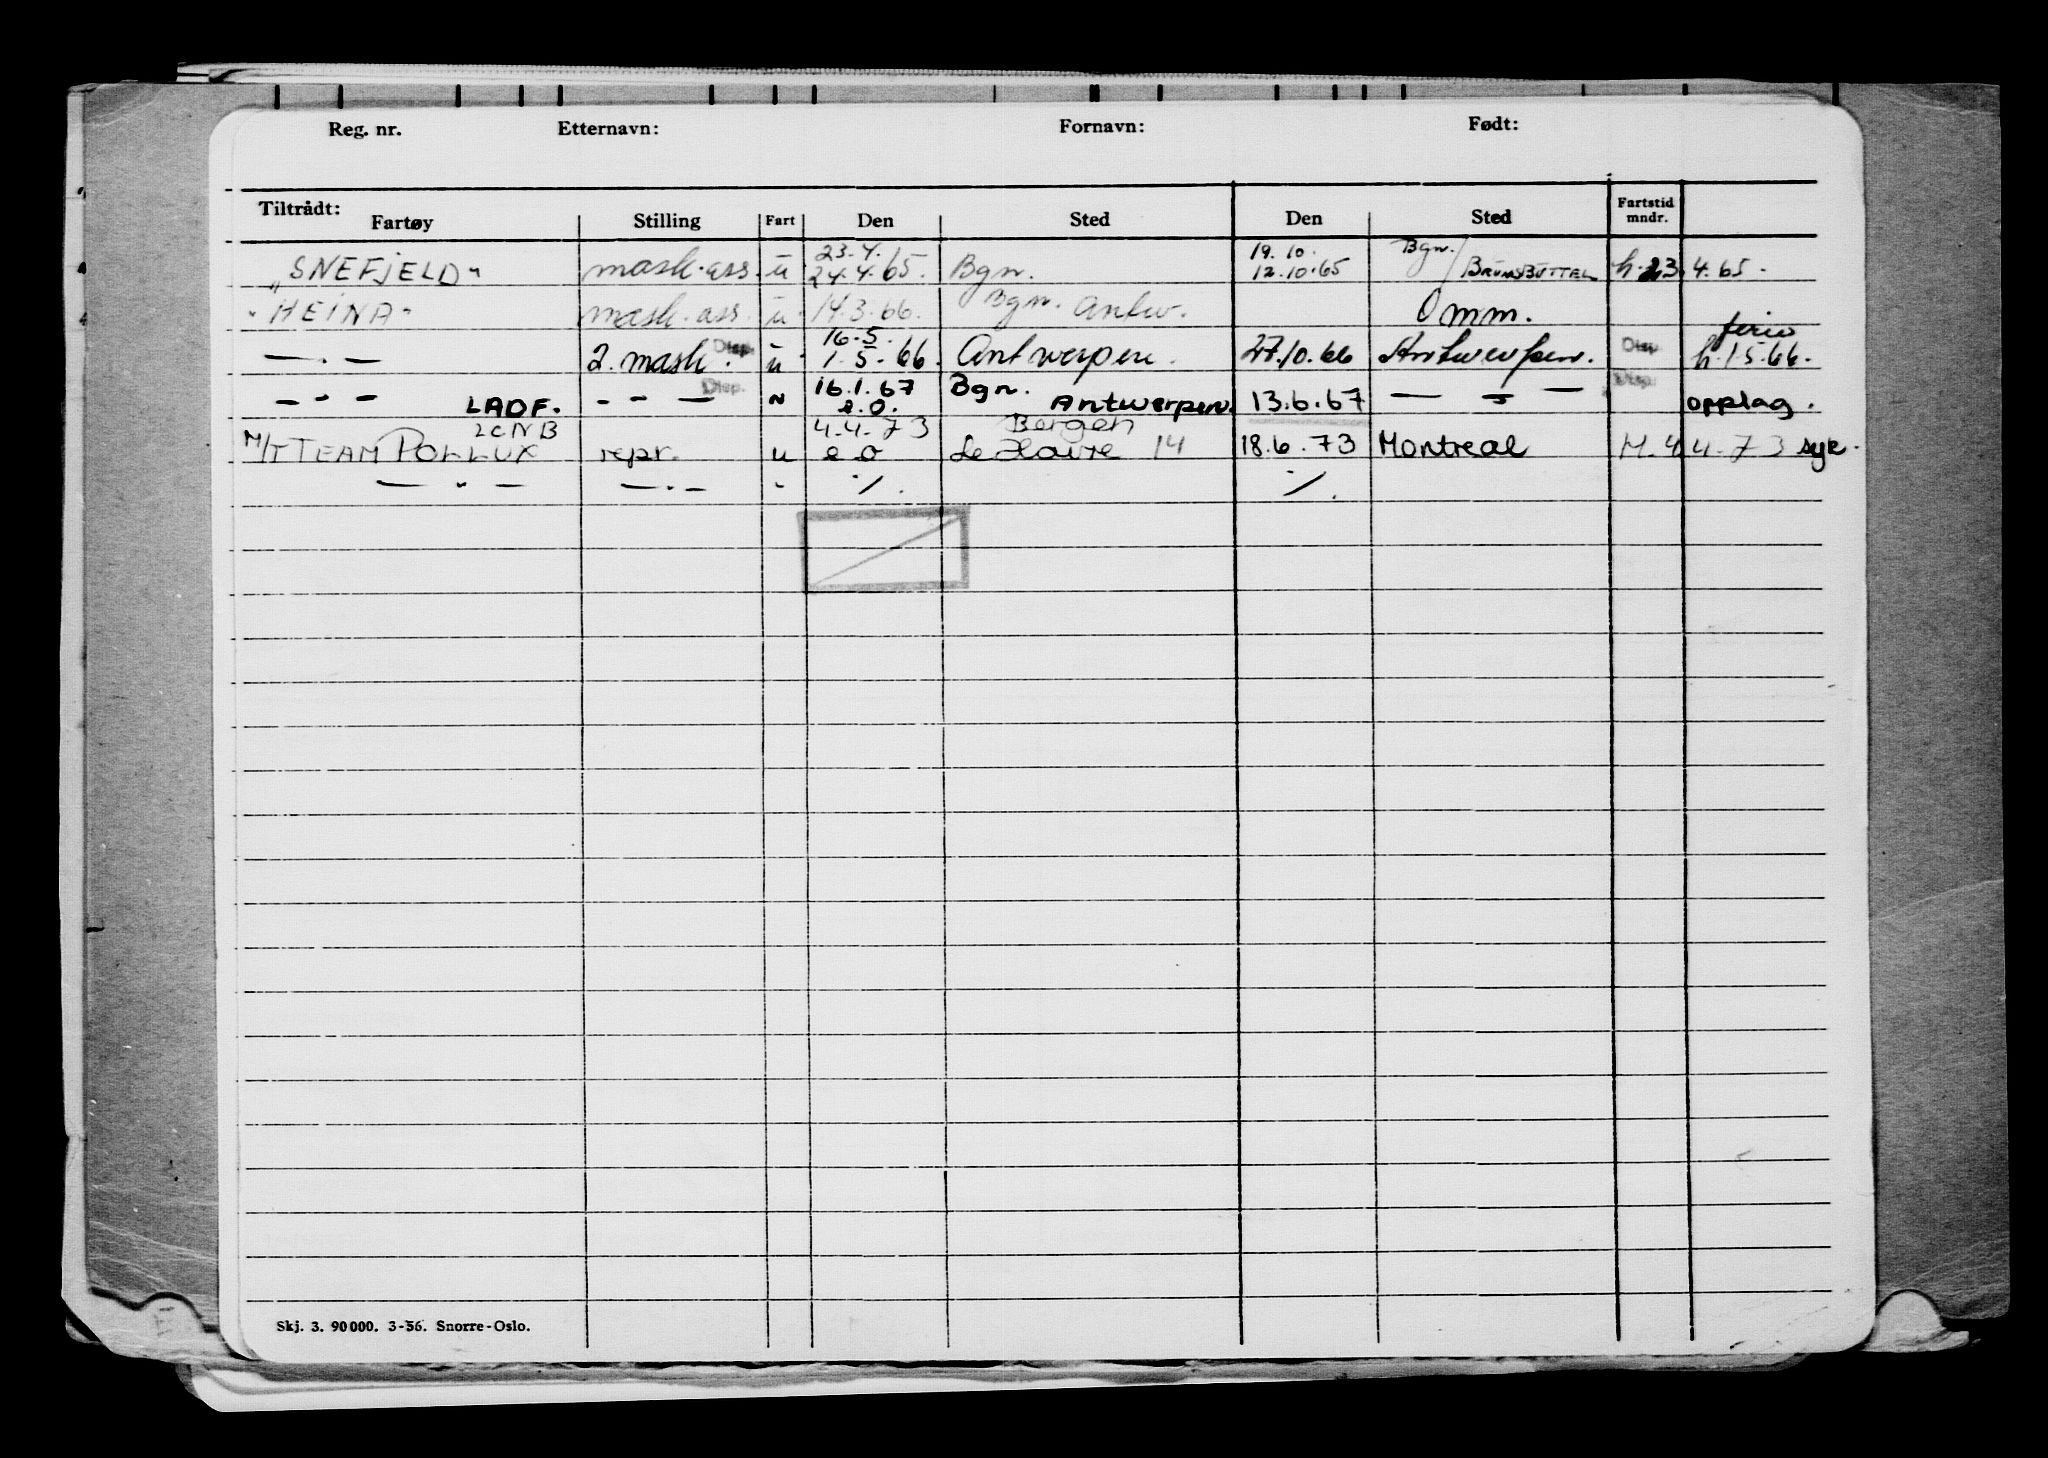 Reg. nr. Etternavn: Fornavn: Født:
Tiltrådt: Fartøy Stilling Fart Den Sted Den Sted Fartstid mndr.
23.4. 19.10. Bgn./
"SNEFJELD" mask.ass. u 24.4.65. Bgn. 12.10.65 BRUNSBÜTTEL h. 23.4.65.
"HEINA" mask.ass. u 14.3.66. Bgn. Antw. Omm.
16.5. ferie
— . — 2. mask. Disp. u 1.5.66. Antwerpen. 27.10.66 Antwerpen. Disp. h. 1.5.66.
Disp. 16.1.67 Bgn. Disp.
— - — LADF. - - — ~ e.o. Antwerpen. 13.6.67 — " — opplag.
LCNB 4.4.73 Bergen
M/T TEAM POLLUX repr. u e o Le Havre 14 18.6.73 Montreal M. 4.4.73 syk.
— " — — . — - ./. ./.
Skj. 3. 90000. 3-56. Snorre-Oslo.
E